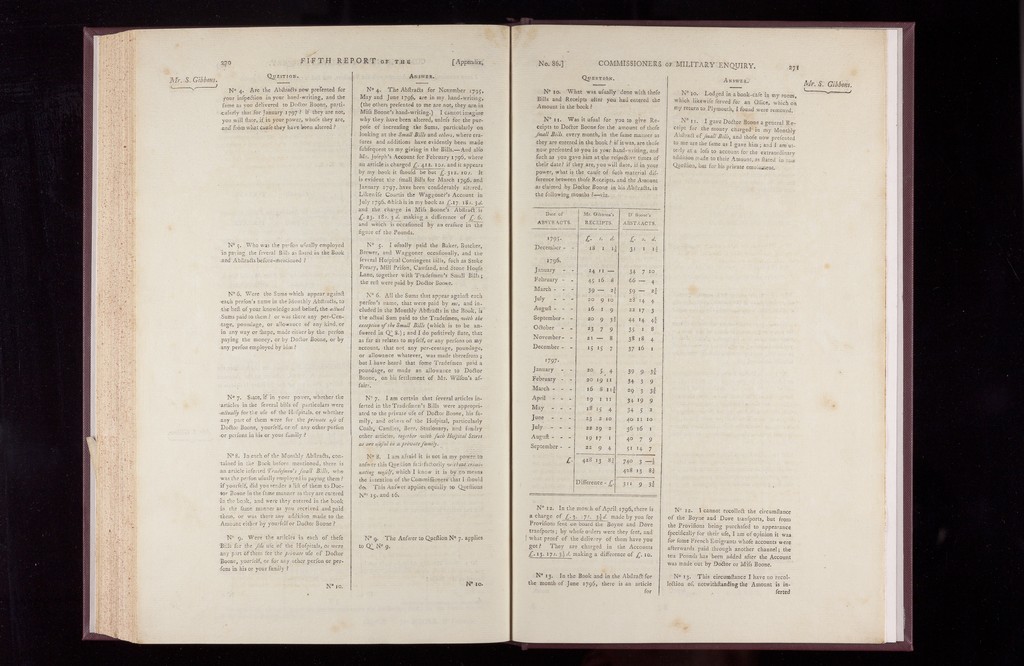 270
FIFTH REPORT OF THE
[Appendix,
Mr. S. Gibbons.
QUESTION.
Nº 4. Are the Abstracts now presented for
your inspection in your hand-writing, and the
same as you delivered to Doctor Boone, parti-
cularly that for January 1797? if they are not,
you will state, if in your power, which they are,
and from what cause they have been altered?
Nº 5. Who was the person usually employed
in paying the several Bills as stated in the Book
and Abstracts before-mentioned?
Nº 6. Were the Sums which appear against
each person's name in the Monthly Abstracts, to
the best of your knowledge and belief, the actual
Sums paid to them? or was there any per-Cen-
tage, poundage, or allowance of any kind, or
in any way or shape, made either by the person
paying the money, or by Doctor Boone, or by
any person employed by him?
Nº 7. State, if in your power, whether the
articles in the several bills of particulars were
actually for the use of the Hospitals, or whether
any part of them were for the private use of
Doctor Boone, yourself, or of any other person
or persons in his or your family?
Nº 8. In each of the Monthly Abstracts, con-
tained in the Book before mentioned, there is
an article inserted Tradesmen's small Bills, who
was the person usually employed in paying them?
if yourself, did you render a list of them to Doc-
tor Boone in the same manner as they are entered
in the book, and were they entered in the book
in the same manner as you received and paid
them, or was there any addition made to the
Amount either by yourself or Doctor Boone?
Nº 9. Were the articles in each of these
Bills for the sole use of the Hospitals, or were
any part of them for the private use of Doctor
Boone, yourself, or for any other person or per-
sons in his or your family?
Nº 10.
ANSWER.
Nº 4. The Abstracts for November 1795,
May and June 1796, are in my hand-writing,
(the others presented to me are not, they are in
Miss Boone's hand-writing.) I cannot imagine
why they have been altered, unless for the pur-
pose of increasing the Sums, particularly on
looking at the Small Bills and others, where era-
sures and additions have evidently been made
subsequent to my giving in the Bills.—And also
Mr. Joseph's Account for February 1796, where
an article is charged £. 412. 10s. and it appears
by my book it should be but £. 312. 10s. It
is evident the small Bills for March 1796, and
January 1797, have been considerably altered.
Likewise Courtis the Waggoner's Account in
July 1796, which is in my book as £.17. 18s. 3d.
and the charge in Miss Boone's Abstract is
£. 23. 18s. 3d. making a difference of £. 6.
and which is occasioned by an erasure in the
figure of the Pounds.
Nº 5. I usually paid the Baker, Butcher,
Brewer, and Waggoner occasionally, and the
several Hospital Contingent bills, such as Stoke
Priory, Mill Prison, Cawsand, and Stone House
Lane, together with Tradesmen's Small Bills;
the rest were paid by Doctor Boone.
Nº 6. All the Sums that appear against each
person's name, that were paid by me, and in-
cluded in the Monthly Abstracts in the Book, is
the actual sum paid to the Tradesmen, with the
exception of the Small Bills (which is to be an-
swered in Q. 8.); and I do positively state, that
as far as relates to myself, or any persons on my
account, that not any per-centage, poundage,
or allowance whatever, was made therefrom;
but I have heard that some Tradesmen paid a
poundage, or made an allowance to Doctor
Boone, on his settlement of Mr. Willson's af-
fairs.
Nº 7. I am certain that several articles in-
serted in the Tradesmen's Bills were appropri-
ated to the private use of Doctor Boone, his fa-
mily, and others of the Hospital, particularly
Coals, Candles, Beer, Stationary, and sundry
other articles, together with such Hospital Stores
as are useful in a private family.
Nº 8. I am afraid it is not in my power to
answer this Question satisfactorily without crimi-
nating myself, which I know it is by no means
the intention of the Commissioners that I should
do. This Answer applies equally to Questions
Nº 15. and 16.
Nº 9. The Answer to Question Nº 7. applies
to Q. Nº 9.
Nº 10.
No. 86.]
COMMISSIONERS OF MILITARY ENQUIRY.
271
Mr. S. Gibbons.
QUESTION.
Nº 10. What was usually done with these
Bills and Receipts after you had entered the
Amount in the book?
Nº 11. Was it usual for you to give Re-
ceipts to Doctor Boone for the amount of these
small Bills every month, in the same manner as
they are entered in the book? if it was, are those
now presented to you in your hand-writing, and
such as you gave him at the respective times of
their date? if they are, you will state, if in your
power, what is the cause of such material dif-
ference between these Receipts, and the Amount
as claimed by Doctor Boone in his Abstracts, in
the following months?—viz.
ANSWER.
Nº 10. Lodged in a book-case in my room,
which likewise served for an Office, which on
my return to Plymouth, I found were removed.
Nº 11. I gave Doctor Boone a general Re-
ceipt for the money charged in my Monthly
Abstract of small Bills, and those now presented
to me are the same as I gave him; and I am ut-
terly at a loss to account for the extraordinary
addition made to their Amount, as stated in this
Question, but for his private emolument.
Date of ABSTRACTS. Mr. Gibbons's RECEIPTS. Dr Boone's ABSTRACTS.
1795. £. s. d. £. s. d.
December - 18 1 1½ 31 1 1½
1796.
January - - 14 11 — 34 7 10
February - - 45 16 8 66 — 4
March - - - 39 — 2½ 59 — 2½
July - - - 10 9 10 28 14 4
August - - - 16 1 9 22 17 3
September - - 20 9 3½ 44 14 4½
October - - 23 7 9 35 1 8
November - - 21 — 8 38 18 4
December - - 15 15 7 37 16 1
1797.
January - - 20 5 4 39 9 3½
February - - 20 19 11 34 5 9
March - - - 16 8 11½ 29 3 3½
April - - - 19 1 11 34 19 9
May - - - 18 15 4 34 5 2
June - - - 23 2 10 40 11 10
July - - - 22 19 2 36 16 1
August - - - 19 17 1 40 7 9
September - - 22 9 4 51 14 7
£. 428 13 8½ 740 3 —½
428 13 8½
Difference - £. 311 9 3½
Nº 12. In the month of April 1796, there is
a charge of £. 3. 7s. 5½d made by you for
Provisions sent on board the Boyne and Dove
transports; by whose orders were they sent, and
what proof of the delivery of them have you
got? They are charged in the Accounts
£.13. 17s. 5½d. making a difference of £. 10.
Nº 13. In the Book and in the Abstract for
the month of June 1796, there is an article
for
Nº 12. I cannot recollect the circumstance
of the Boyne and Dove transports, but from
the Provisions being purchased to appearance
specifically for their use, I am of opinion it was
for some French Emigrants whose accounts were
afterwards paid through another channel; the
ten Pounds has been added after the Account
was made out by Doctor or Miss Boone.
Nº 13. This circumstance I have no recol-
lection of, notwithstanding the Amount is in-
serted